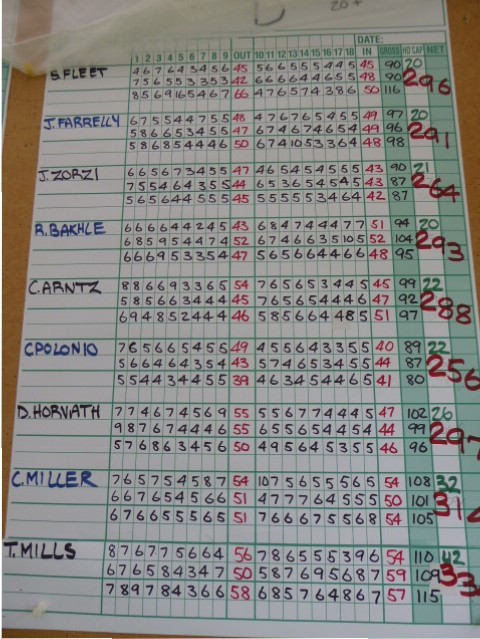 20+
DATE:
1 2 3 4 5 6 7 8 9 OUT 10 11 12 13 14 15 16 17 18 IN GROSS HD CAP NET
S.FLEET 4 6 7 6 4 3 4 5 6 45 5 6 6 5 5 5 4 4 5 45 90 20
7 5 6 5 5 3 3 5 3 42 6 6 6 6 4 4 6 5 5 48 90 296
8 5 6 9 16 5 4 6 7 66 4 7 6 5 7 4 3 8 6 50 116
J.FARRELLY 6 7 5 5 5 4 4 7 5 5 48 4 7 6 7 6 5 4 5 5 49 97 20
5 8 6 6 5 3 4 5 5 47 6 7 4 6 7 4 6 5 4 49 96 291
5 8 6 8 5 4 4 4 6 50 6 7 4 10 5 3 3 6 4 48 98
J.ZORZI 6 6 5 6 7 3 4 5 5 47 4 6 5 4 5 4 5 5 5 43 90 21
7 5 5 4 6 4 3 5 5 44 6 5 3 6 5 4 5 4 5 43 87 264
5 6 5 6 4 4 5 5 5 45 5 5 5 5 5 3 4 6 4 42 87
R.BAKHLE 6 6 6 6 4 4 2 4 5 43 6 8 4 7 4 4 4 7 7 51 94 20
6 8 5 9 5 4 4 7 4 52 6 7 4 6 6 3 5 10 5 52 104 293
6 6 6 9 5 3 3 5 4 47 5 6 5 6 6 4 4 6 6 48 95
C.ARNTZ 8 8 6 6 9 3 3 6 5 54 7 6 5 6 5 3 4 4 5 45 99 22
5 8 5 6 6 3 4 4 4 45 7 6 5 6 5 4 4 4 6 47 92 288
6 9 4 8 5 2 4 4 4 46 5 8 5 6 6 4 4 8 5 51 97
C.POLONIO 7 6 5 6 6 5 4 5 5 49 4 5 5 6 4 3 3 5 5 40 89 22
5 6 6 4 6 4 3 5 4 43 5 7 4 6 5 3 4 5 5 44 87 256
5 5 4 4 3 4 4 5 5 39 4 6 3 4 5 4 4 6 5 41 80
D.HORVATH 7 7 4 6 7 4 5 6 9 55 5 5 6 7 7 4 4 4 5 47 102 26
9 8 7 6 7 4 4 4 6 55 6 5 5 6 5 4 4 5 4 44 99 297
5 7 6 8 6 3 4 5 6 50 4 9 5 6 4 5 3 5 5 46 96
C.MILLER 7 6 5 7 5 4 5 8 7 54 10 7 5 6 5 5 5 6 5 54 108 32
6 6 7 6 5 4 5 6 6 51 4 7 7 7 6 4 5 5 5 50 101 312
6 7 6 6 5 5 5 6 5 51 7 6 6 6 7 5 5 6 8 54 105
T.MILLS 8 7 6 7 7 5 6 6 4 56 7 8 6 5 5 5 3 9 6 54 110 42
6 7 6 5 8 4 3 4 7 50 5 8 7 6 9 5 6 8 7 59 109 33
7 8 9 7 8 4 3 6 6 58 6 8 5 7 6 4 8 6 7 57 115